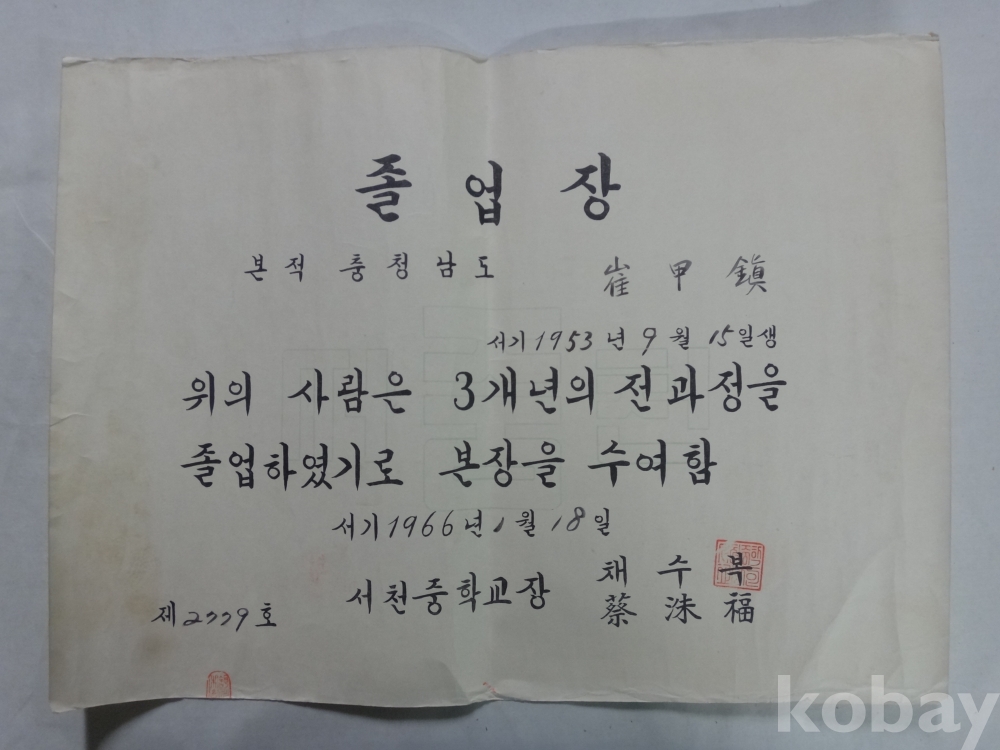 졸업장
본적 충청남도 崔甲鎭
서기 1953년 9월 15일생
위의 사람은 3개년의 전과정을
졸업하였기로 본장을 수여함
서기 1966년 1월 18일
채수복
서천중학교장 蔡洙福
제2779호
kobay